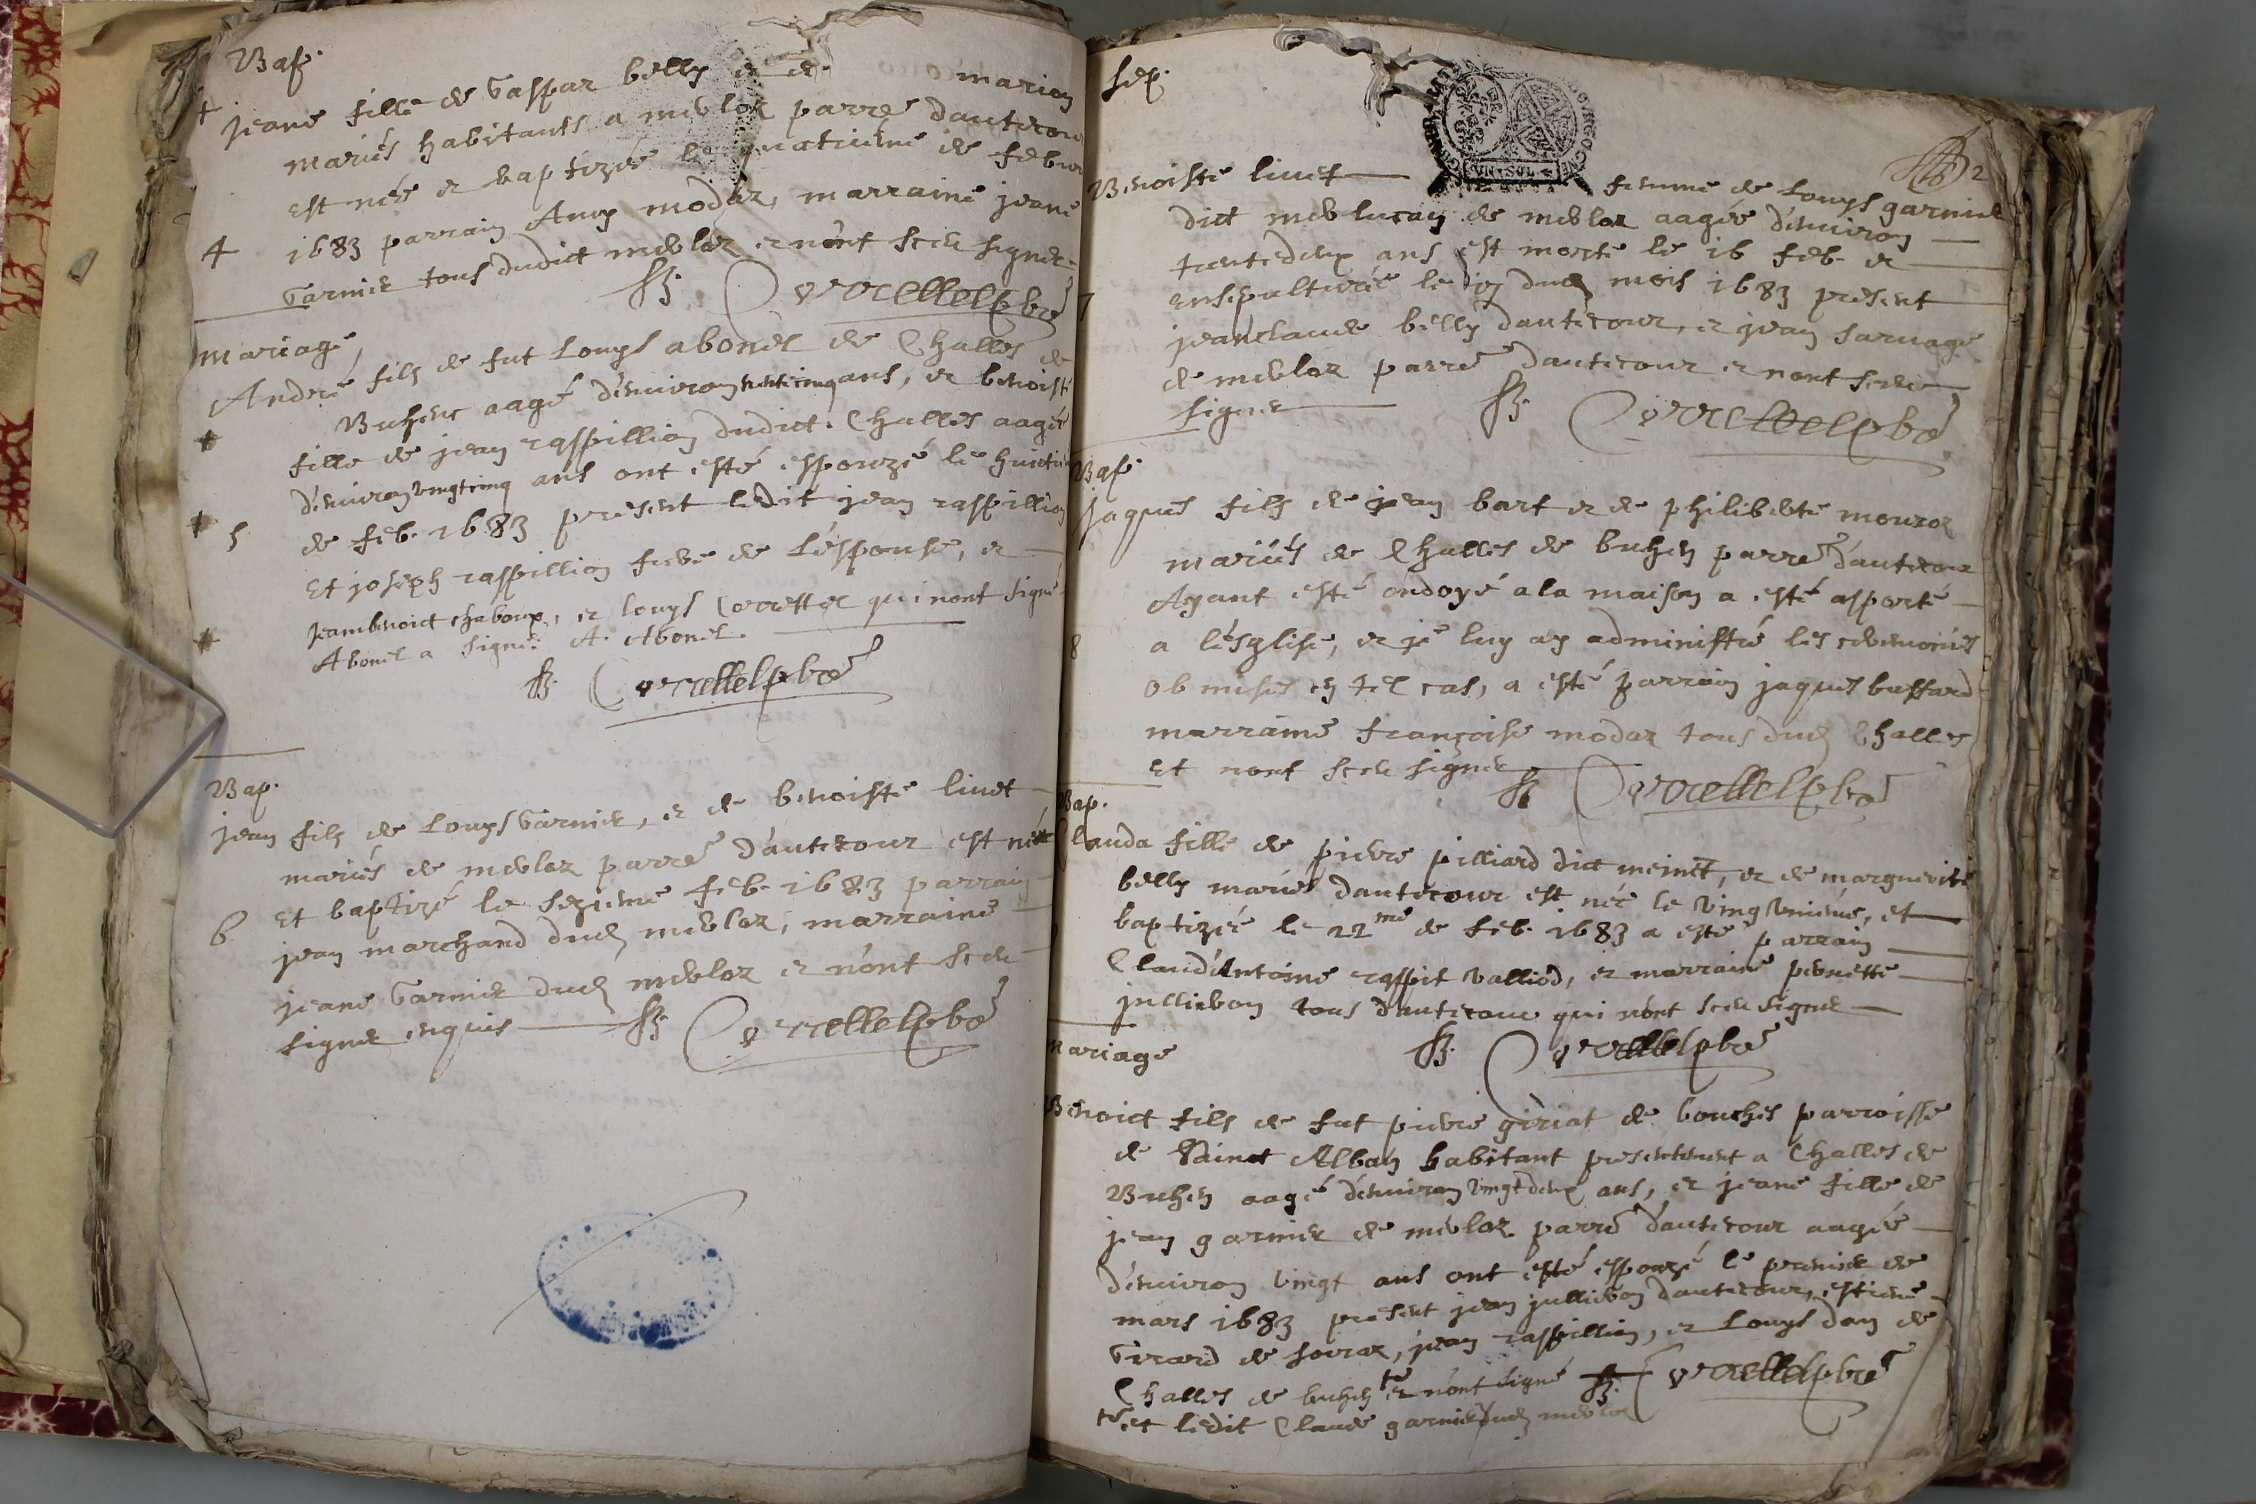 Bap.
jeane fille de Gaspar belly et de marion
mariés habitants a merloz parre d'autecour
est née et baptizée le quatrieme de febur
4 1683 parrain Amy modaz, marraine jeane
Garnier tous dudict merloz et n'ont sceu signer
mariage
André fils de fut Louys abonel de Challes de
Buhenc aagé d'enuiron trentecinq ans, et benoiste
fille de jean raspillion dudict Challes aagée
d'enuiron vingtcinq ans ont esté espouzé le huictie
5 de feb. 1683 present ledit jean raspillion
Et joseph raspillion frere de L'espouse, et
jeambenoict chaboux, et louys qui n'ont signé
Abonel a signé. A. Abonel.
Bap.
jean fils de Louys Garnier, et de benoiste liuet
mariés de merloz parre d'autecour est né
Et baptizé le sezieme feb. 1683 parrain
6 jean marchand dud merloz, marraine
jeane Garnier dud merloz et n'ont sceu
signer enquis
Sep.
2
Benoiste liuet femme de Louys garnier
dict de merloz aagée d'enuiron
trentedeux ans est morte le 16 feb. et
7 ensepulturée le dud mois 1683 present
jeanclaude belly d'autecour, et jean saruage
de merloz parre d'autecour et n'ont sceu
signer
Bap
Jaques fils de jean bart et de philiberte mouroz
mariés de Challes de buhen parre d'autecour
Ayant esté ondoyé a la maison a esté asporté
8 a l'esglise, et je luy ay administré les ceremonies
obmises en tel cas, a esté parrain jaques buffard
marraine françoise modaz tous dud Challes
Et n'ont sceu signer
Bap.
Clauda fille de pierre pilliard dict meinet, et de marguerite
belly mariés d'autecour est née le vingtvnième, et
baptizée le 22me de feb. 1683 a esté parrain
Claud'Antoine raspit valliod, et marraine pernette
jullieron tous d'autecour qui n'ont sceu signer
mariage
Benoict fils de fut pierre giriat de bouches parroisse
de Sainct Alban habitant presentement a Challes de
Buhen aagé d'enuiron vingtdeux ans, et jeane fille de
jean garnier de merloz parre d'autecour aagée
d'enuiron vingt ans ont esté espouzé le premier de
mars 1683 present jean jullieron d'autecour, estiene
Girard de soiraz, jean raspillion, et Louys dan de
Challes de buhen et n'ont signé
et ledit Claude garnier dud merloz